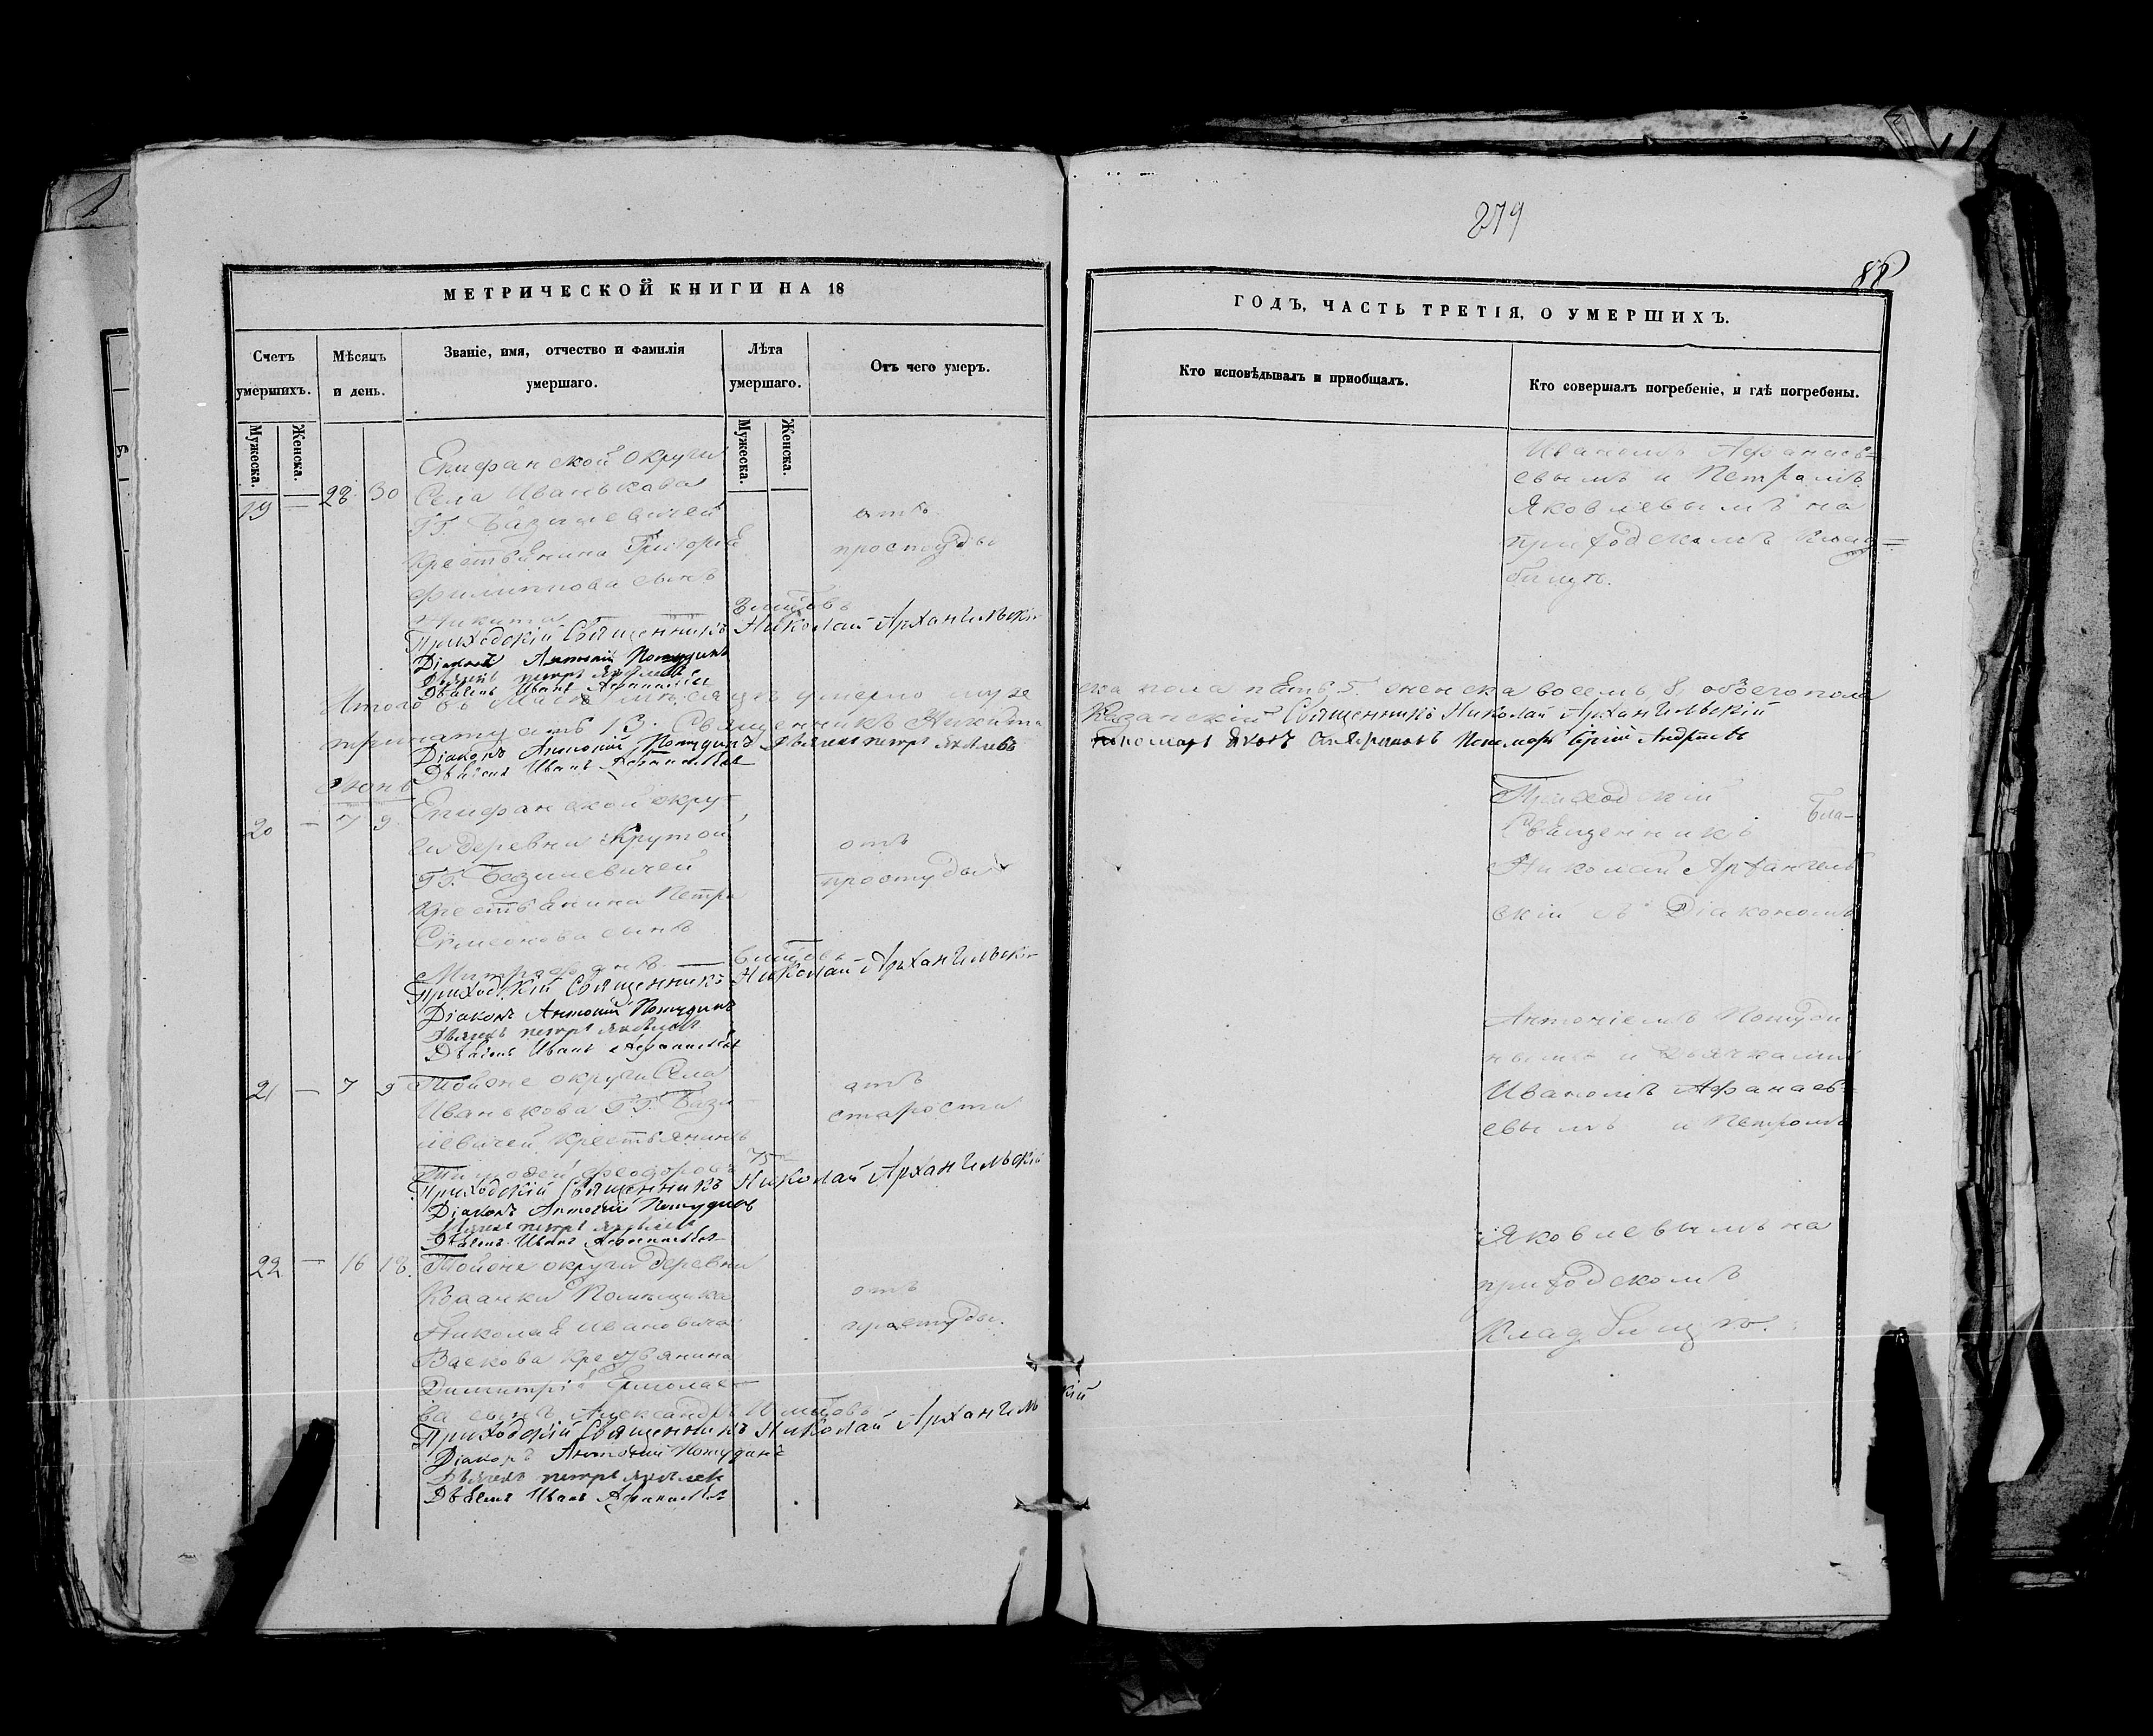 279
88
МЕТРИЧЕСКОЙ КНИГИ НА 18
Счетъ умершихъ.
Мужеска.
Женска.
Мѣсяцъ и день.
Званіе, имя, отчество и фамилія умершаго.
Лѣта умершаго.
Мужеска.
Женска.
Отъ чего умеръ.
19 — 28 30
Епифанской округи
Села Иванькова
ГГ. Базилевичей
крестьянина Григорія
Филиппова сынъ
Никита —
отъ
простуды
Приходскій Священникъ Николай Архангельскій
Діаконъ Антоній Потудинъ
Дьячекъ Петръ Яковлевъ
Дьячекъ Иванъ Афанасьевъ
Итого въ Маіѣ мѣсяцѣ умерло муже
тринатцать 13. Священникъ Никита
Діаконъ Антоній Потудинъ Дьячекъ Петръ Яковлевъ
Дьячекъ Иванъ Афанасьевъ
Іюнь
20 — 7 9
Епифанской окру-
ги деревни Крутой
ГГ. Базилевичей
крестьянина Петра
Симеонова сынъ
Митрофанъ. —
отъ
простуды
Приходскій Священникъ Николай Архангельскій
Діаконъ Антоній Потудинъ
Дьячекъ Петръ Яковлевъ
Дьячекъ Иванъ Афанасьевъ
21 — 7 9
Тойже округи Села
Иванькова ГГ. Бази
левичей крестьянинъ
Тимофей Феодоровъ
75
отъ
старости
Приходскій Священникъ Николай Архангельскій
Діаконъ Антоній Потудинъ
Дьячекъ Петръ Яковлевъ
Дьячекъ Иванъ Афанасьевъ
22 — 16 18.
Тойже округи деревни
Помѣщика
Николая Ивановича
Васкова крестьянина
Димитрія Ермолае-
ва сынъ Александръ
отъ
простуды.
Приходскій Священникъ Николай Архангельскій
Діаконъ Антоній Потудинъ
Дьячекъ Петръ Яковлевъ
Дьячекъ Иванъ Афанасьевъ
ГОДЪ, ЧАСТЬ ТРЕТІЯ, О УМЕРШИХЪ.
Кто исповѣдывалъ и пріобщалъ.
Кто совершалъ погребеніе, и гдѣ погребены.
Иваномъ Афанась=
евымъ и Петромъ
Яковлевымъ на
приходскомъ Клад=
бищѣ.
ска пола пять, 5. женска восемь, 8, обоего пола
Священникъ Николай Архангельскій
Пономарь Яковъ Пономарь Андреевъ
Приходскій
Священникъ
Николай Архангель
скій съ Діакономъ
Антоніемъ Потуди
нымъ и Дьячками
Иваномъ Афанась=
евымъ и Петромъ
Яковлевымъ на
приходскомъ
Кладбищѣ.